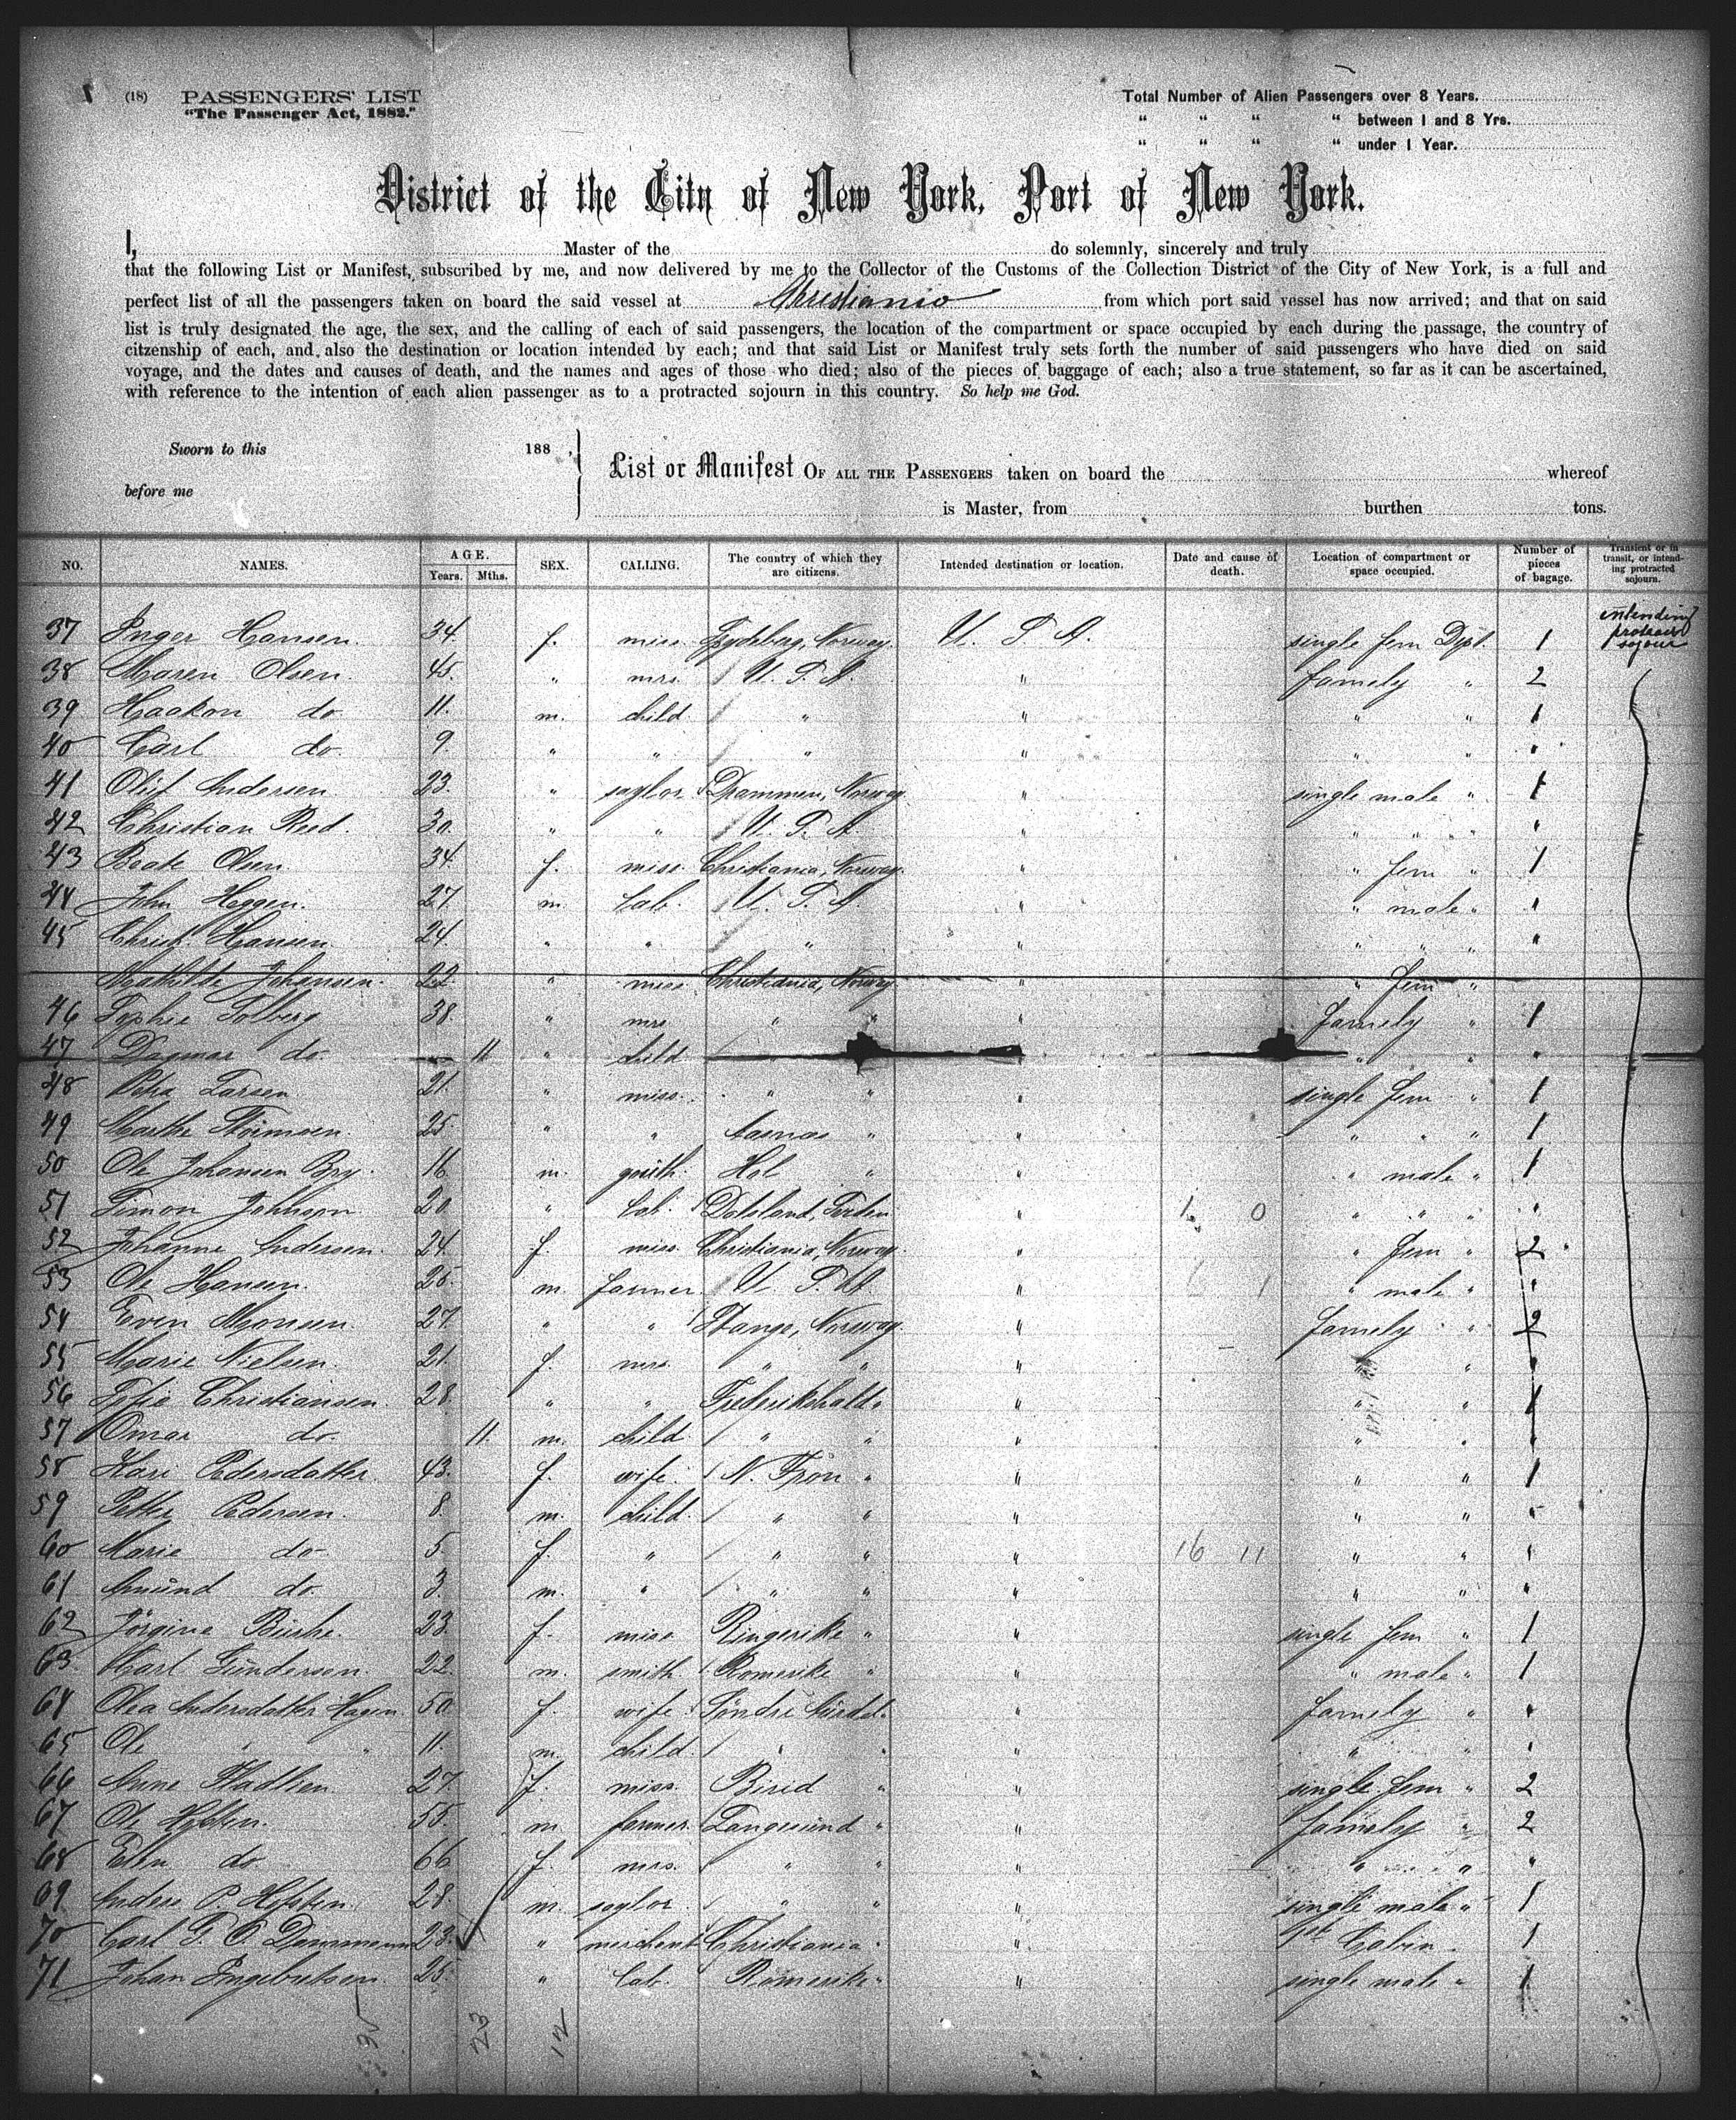 (18) PASSENGERS' LIST
"The Passenger Act, 1882."
Total Number of Alien Passengers over 8 Years.
" " " " between 1 and 8 Yrs.
" " " " under 1 Year.
District of the City of New York, Port of New York.
I, Master of the do solemnly, sincerely and truly
that the following List or Manifest, subscribed by me, and now delivered by me to the Collector of the Customs of the Collection District of the City of New York, is a full and
perfect list of all the passengers taken on board the said vessel at Christiania from which port said vessel has now arrived; and that on said
list is truly designated the age, the sex, and the calling of each of said passengers, the location of the compartment or space occupied by each during the passage, the country of
citzenship of each, and also the destination or location intended by each; and that said List or Manifest truly sets forth the number of said passengers who have died on said
voyage, and the dates and causes of death, and the names and ages of those who died; also of the pieces of baggage of each; also a true statement, so far as it can be ascertained,
with reference to the intention of each alien passenger as to a protracted sojourn in this country. So help me God.
Sworn to this 188 ,
before me
List or Manifest OF ALL THE PASSENGERS taken on board the whereof
is Master, from burthen tons.
NO. NAMES. AGE. Years. Mths. SEX. CALLING. The country of which they are citizens. Intended destination or location. Date and cause of death. Location of compartment or space occupied. Number of pieces of bagage. Transient or in transit, or intending protracted sojourn.
37 Inger Hansen. 34. f. miss. Norway. U. S. A. single fem Dpt. 1 intending sojour
38 Maren Olsen. 45. " mrs. U. S. A. " famely " 2
39 Haakon do. 11. m. child. " " " " 1
40 Carl do. 9. " " " " " " "
41 Oluf Andersen. 23. " saylor. Drammen, Norway. " single male " 1
42 Christian Reed. 30. " " U. S. A. " " " " "
43 Beate Olsen. 34. f. miss. Christiania, Norway. " " fem " 1
44 John Heggen. 27. m. Lab. U. S. A. " " male " "
45 Christ. Hansen. 24 " " " " " " " "
Mathilde Johansen. 22. " miss Christiania, Norway " " fem "
46 Sophie Solberg 38. " mrs " " " famely " 1
47 Dagmar do. 11 " child " " "
48 Petra Larsen. 21. " miss. " " " single fem " 1
49 Marthe 25. " " " " " " " 1
50 Ole Johansen Bry. 16. m. Hol " " " male " 1
51 Simon Johnson 20 " Lab. " 1. 0 " " " "
52 Johanne Andersen. 24. f. miss. Christiania, Norway. " " fem " 2
53 Ole Hansen. 25. m. farmer. U. S. A. " 6 1 " male " "
54 Even Monsen. 27. " " Stange, Norway. " famely " 2
55 Marie Nielsen. 21. f. mrs. " " " " "
56 Sofie Christiansen. 28. " " Frederikshald " " " " 1
57 Omar do. 11. m. child. " " " " " "
58 Kari Pedersdatter. 43. f. wife. N. Fron " " " " 1
59 Petter Pedersen. 8. m. child. " " " " " "
60 Marie do. 5. f. " " " " 16 11 " " "
61 Amund do. 3. m. " " " " " " "
62 Jörgine 23. f. miss Ringerike " " single fem " 1
63 Karl Gundersen. 22. m. smith Romerike " " " male " 1
64 Olea Andersdatter Hagen. 50. f. wife Söndre " " famely " "
65 Ole " " 11. m. child. " " " " " "
66 Anne 27. f. miss. Birid " " single fem " 2
67 Ole 55. m. farmer. Langesund " " famely " 2
68 Ellen do. 66 f. mrs. " " " " " "
69 Anders P. 28. m. saylor. " " " single male " 1
70 Carl 23. " merchent Christiania " " 1st Cabin. 1
71 Johan Ingebretsen. 25. " Lab. Romerike " " single male " 1
23 12